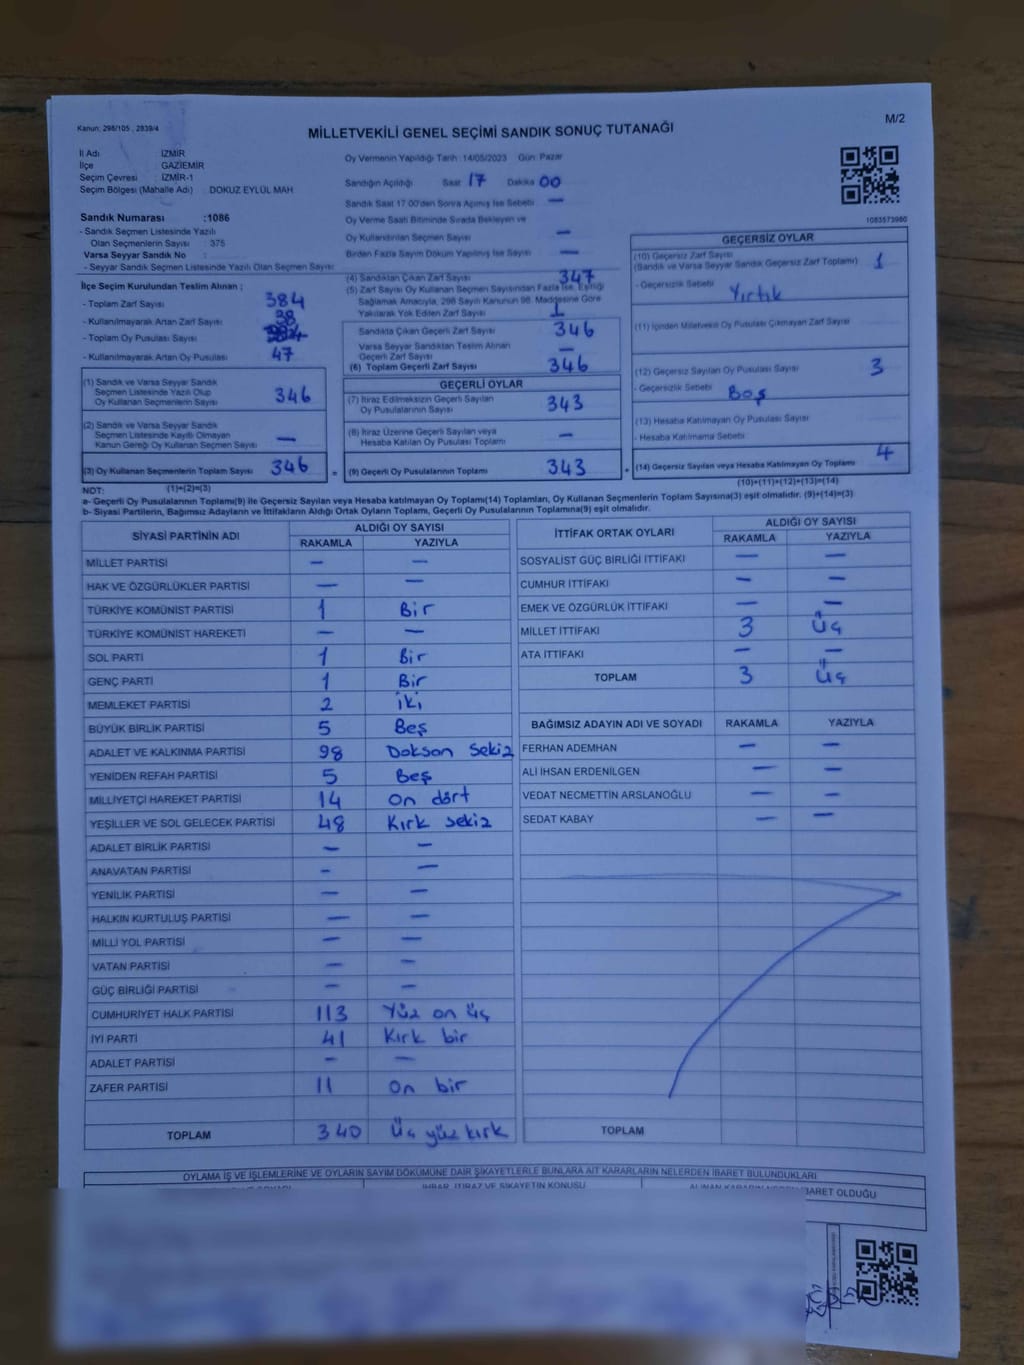 M/2
Kanun: 298/105 , 2839/4
MİLLETVEKİLİ GENEL SEÇİMİ SANDIK SONUÇ TUTANAĞI
İl Adı : İZMİR
İlçe : GAZİEMİR
Seçim Çevresi : İZMİR-1
Seçim Bölgesi (Mahalle Adı) : DOKUZ EYLÜL MAH
Sandık Numarası :1086
- Sandık Seçmen Listesinde Yazılı
Olan Seçmenlerin Sayısı : 375
Varsa Seyyar Sandık No :
- Seyyar Sandık Seçmen Listesinde Yazılı Olan Seçmen Sayısı:
İlçe Seçim Kurulundan Teslim Alınan ;
- Toplam Zarf Sayısı 384
- Kullanılmayarak Artan Zarf Sayısı 38
- Toplam Oy Pusulası Sayısı
- Kullanılmayarak Artan Oy Pusulası 47
(1) Sandık ve Varsa Seyyar Sandık
Seçmen Listesinde Yazılı Olup
Oy Kullanan Seçmenlerin Sayısı 346
(2) Sandık ve Varsa Seyyar Sandık
Seçmen Listesinde Kayıtlı Olmayan
Kanun Gereği Oy Kullanan Seçmen Sayısı —
(3) Oy Kullanan Seçmenlerin Toplam Sayısı 346
(1)+(2)=(3)
Oy Vermenin Yapıldığı Tarih :14/05/2023 Gün: Pazar
Sandığın Açıldığı Saat 17 Dakika 00
Sandık Saat 17:00'den Sonra Açılmış İse Sebebi —
Oy Verme Saati Bitiminde Sırada Bekleyen ve
Oy Kullandırılan Seçmen Sayısı —
Birden Fazla Sayım Döküm Yapılmış İse Sayısı —
(4) Sandıktan Çıkan Zarf Sayısı 347
(5) Zarf Sayısı Oy Kullanan Seçmen Sayısından Fazla İse, Eşitliği
Sağlamak Amacıyla, 298 Sayılı Kanunun 98. Maddesine Göre
Yakılarak Yok Edilen Zarf Sayısı 1
Sandıkta Çıkan Geçerli Zarf Sayısı 346
Varsa Seyyar Sandıktan Teslim Alınan
Geçerli Zarf Sayısı —
(6) Toplam Geçerli Zarf Sayısı 346
GEÇERLİ OYLAR
(7) İtiraz Edilmeksizin Geçerli Sayılan
Oy Pusulalarının Sayısı 343
(8) İtiraz Üzerine Geçerli Sayılan veya
Hesaba Katılan Oy Pusulası Toplamı —
(9) Geçerli Oy Pusulalarının Toplamı 343
1083573980
GEÇERSİZ OYLAR
(10) Geçersiz Zarf Sayısı
(Sandık ve Varsa Seyyar Sandık Geçersiz Zarf Toplamı) 1
- Geçersizlik Sebebi : Yırtık
(11) İçinden Milletvekili Oy Pusulası Çıkmayan Zarf Sayısı
(12) Geçersiz Sayılan Oy Pusulası Sayısı 3
- Geçersizlik Sebebi : Boş
(13) Hesaba Katılmayan Oy Pusulası Sayısı
- Hesaba Katılmama Sebebi :
(14) Geçersiz Sayılan veya Hesaba Katılmayan Oy Toplamı 4
(10)+(11)+(12)+(13)=(14)
NOT:
a- Geçerli Oy Pusulalarının Toplamı(9) ile Geçersiz Sayılan veya Hesaba katılmayan Oy Toplamı(14) Toplamları, Oy Kullanan Seçmenlerin Toplam Sayısına(3) eşit olmalıdır. (9)+(14)=(3)
b- Siyasi Partilerin, Bağımsız Adayların ve İttifakların Aldığı Ortak Oyların Toplamı, Geçerli Oy Pusulalarının Toplamına(9) eşit olmalıdır.
SİYASİ PARTİNİN ADI ALDIĞI OY SAYISI
RAKAMLA YAZIYLA
MİLLET PARTİSİ — —
HAK VE ÖZGÜRLÜKLER PARTİSİ — —
TÜRKİYE KOMÜNİST PARTİSİ 1 Bir
TÜRKİYE KOMÜNİST HAREKETİ — —
SOL PARTİ 1 Bir
GENÇ PARTİ 1 Bir
MEMLEKET PARTİSİ 2 iki
BÜYÜK BİRLİK PARTİSİ 5 Beş
ADALET VE KALKINMA PARTİSİ 98 Doksan sekiz
YENİDEN REFAH PARTİSİ 5 Beş
MİLLİYETÇİ HAREKET PARTİSİ 14 On dört
YEŞİLLER VE SOL GELECEK PARTİSİ 48 Kırk sekiz
ADALET BİRLİK PARTİSİ — —
ANAVATAN PARTİSİ — —
YENİLİK PARTİSİ — —
HALKIN KURTULUŞ PARTİSİ — —
MİLLİ YOL PARTİSİ — —
VATAN PARTİSİ — —
GÜÇ BİRLİĞİ PARTİSİ — —
CUMHURİYET HALK PARTİSİ 113 Yüz on üç
İYİ PARTİ 41 Kırk bir
ADALET PARTİSİ — —
ZAFER PARTİSİ 11 On bir
TOPLAM 340 Üç yüz kırk
İTTİFAK ORTAK OYLARI ALDIĞI OY SAYISI
RAKAMLA YAZIYLA
SOSYALİST GÜÇ BİRLİĞİ İTTİFAKI — —
CUMHUR İTTİFAKI — —
EMEK VE ÖZGÜRLÜK İTTİFAKI — —
MİLLET İTTİFAKI 3 Üç
ATA İTTİFAKI — —
TOPLAM 3 Üç
BAĞIMSIZ ADAYIN ADI VE SOYADI RAKAMLA YAZIYLA
FERHAN ADEMHAN — —
ALİ İHSAN ERDENİLGEN — —
VEDAT NECMETTİN ARSLANOĞLU — —
SEDAT KABAY — —
TOPLAM
OYLAMA İŞ VE İŞLEMLERİNE VE OYLARIN SAYIM DÖKÜMÜNE DAİR ŞİKAYETLERLE BUNLARA AİT KARARLARIN NELERDEN İBARET BULUNDUKLARI
İHBAR, İTİRAZ VE ŞİKAYETİN KONUSU